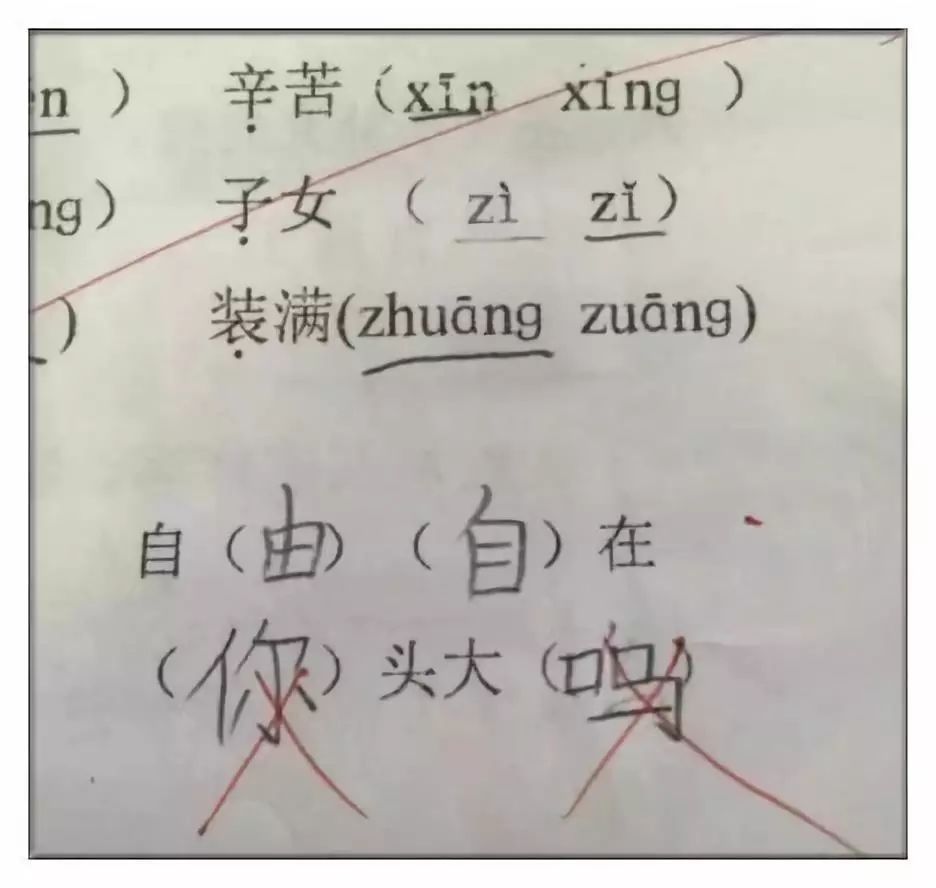 ēn ） 辛苦（xīn xing ）
ng） 子女 （ zì zǐ）
） 装满(zhuāng zuāng)
自（由）（自）在
（你）头大（吗）